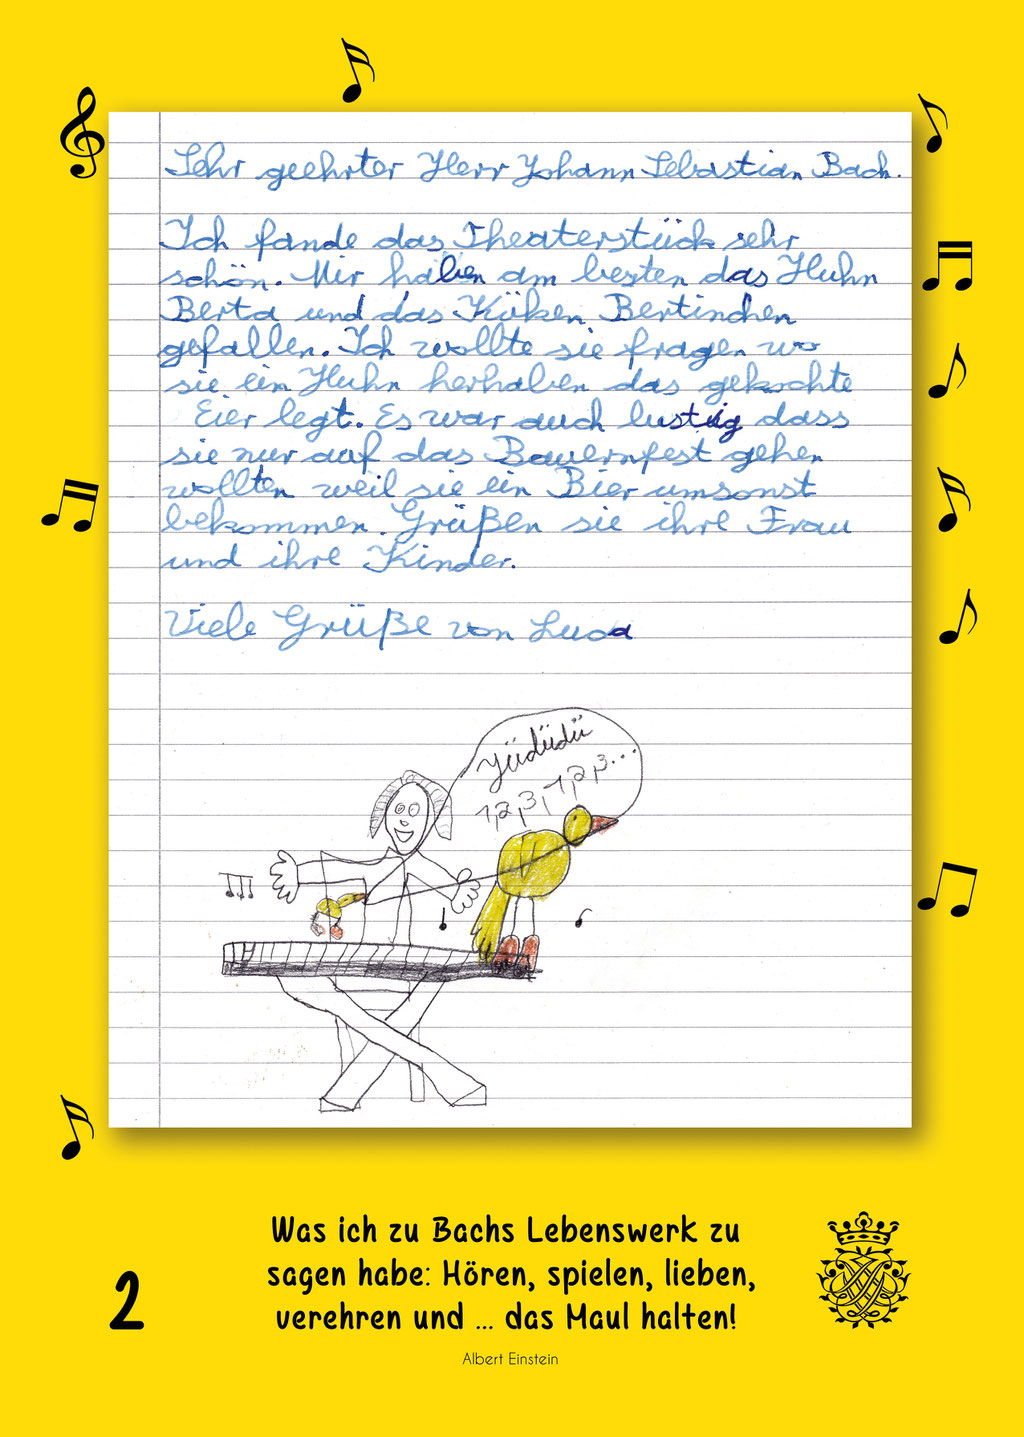 Sehr geehrter Herr Johann Sebastian Bach.
Ich fande das Theaterstück sehr
schön. Mir haben am besten das Huhn
Berta und das Küken Bertinchen
gefallen. Ich wollte sie fragen wo
sie ein Huhn herhaben das gekochte
Eier legt. Es war auch lustig dass
sie nur auf das Bauernfest gehen
wollten weil sie ein Bier umsonst
bekommen. Grüßen sie ihre Frau
und ihre Kinder.
Viele Grüße von Luca
Jüdüdü
1,2,3,1,2,3...
Was ich zu Bachs Lebenswerk zu
sagen habe: Hören, spielen, lieben,
verehren und ... das Maul halten!
Albert Einstein
2